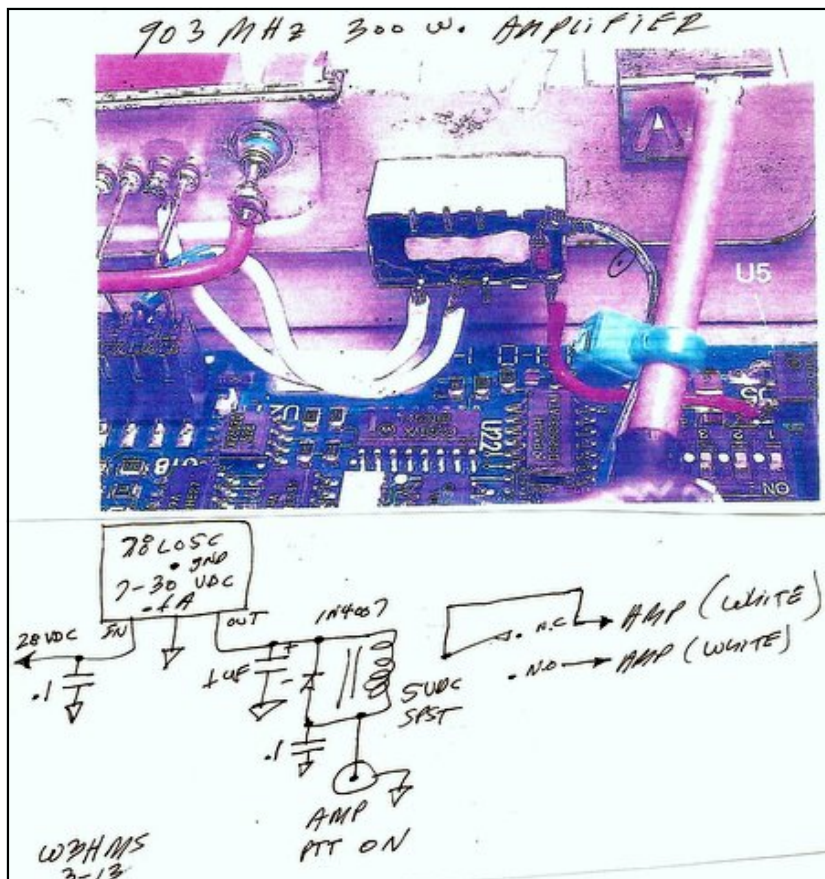 903 MHz 300 W. AMPLIFIER
A
U5
U22
ON
78L05C
GND
7-30 VDC
.1A
28VDC
IN
OUT
1N4007
.1
+
1 UF
-
.1
5VDC
SPST
N.C
AMP (WHITE)
N.O
AMP (WHITE)
AMP
PTT ON
W3HMS
3-13